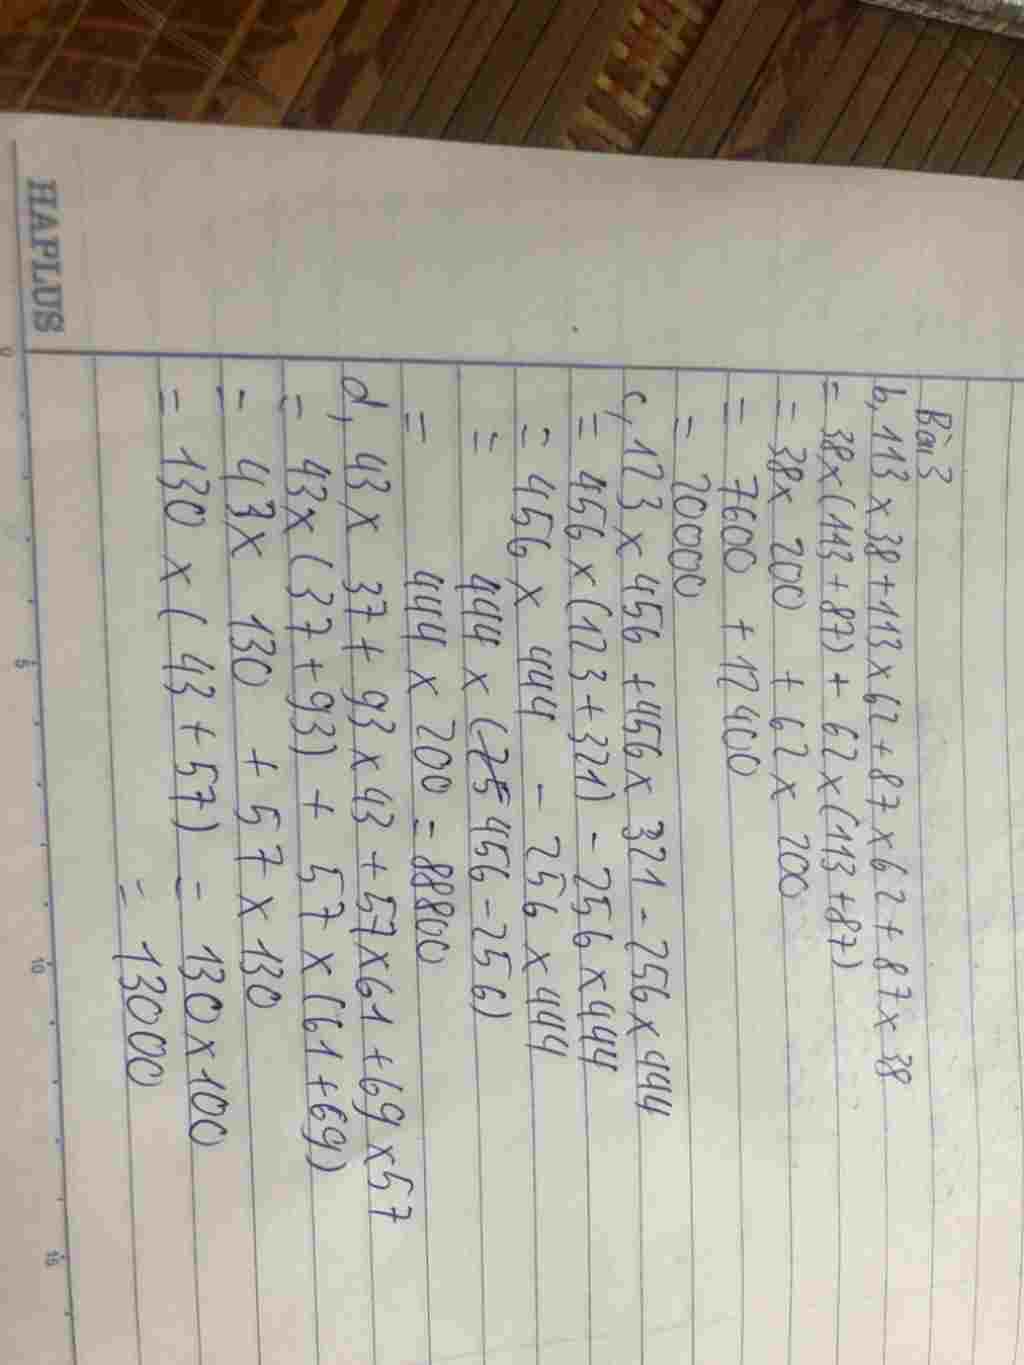 Bài 3
b, 113 x 38 + 113 x 62 + 87 x 62 + 87 x 38
= 38 x (113 + 87) + 62 x (113 + 87)
= 38 x 200 + 62 x 200
= 7600 + 12400
= 20000
c, 123 x 456 + 456 x 321 - 256 x 444
= 456 x (123 + 321) - 256 x 444
= 456 x 444 - 256 x 444
= 444 x (456 - 256)
= 444 x 200 = 88800
d, 43 x 37 + 93 x 43 + 57 x 61 + 69 x 57
= 43 x (37 + 93) + 57 x (61 + 69)
= 43 x 130 + 57 x 130
= 130 x (43 + 57) = 130 x 100
= 13000
HAPLUS
0 5 10 15